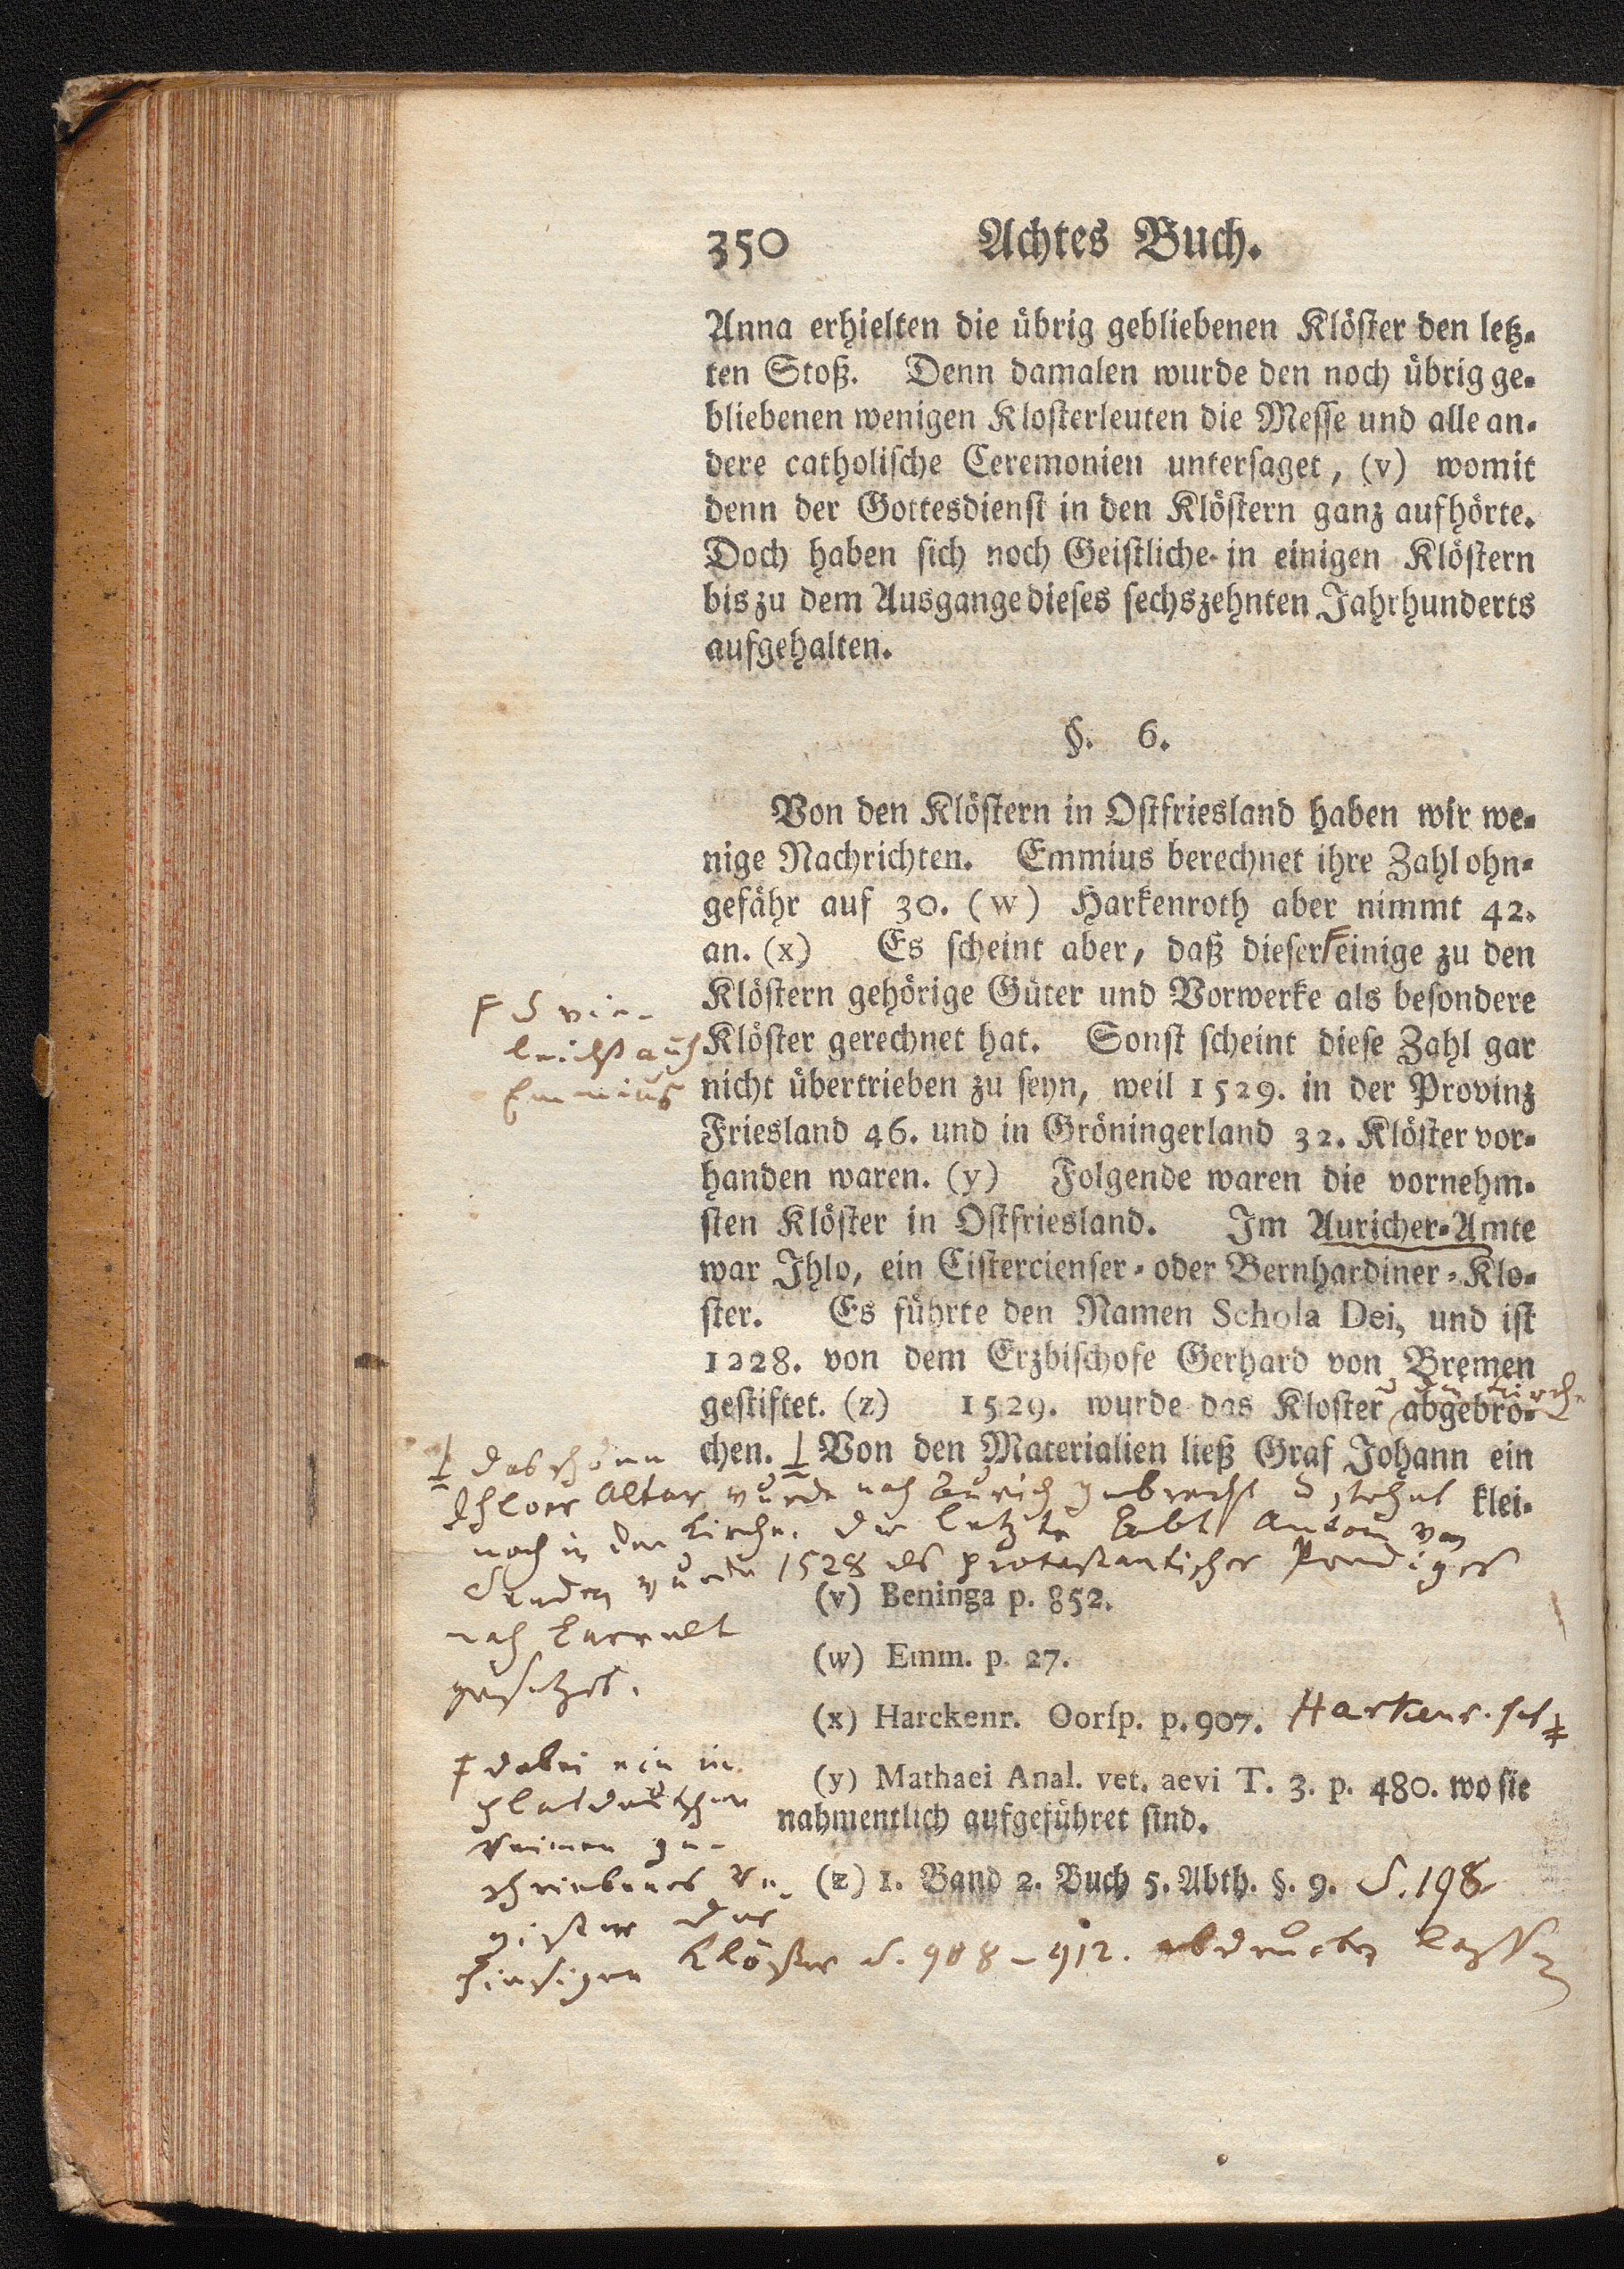 350 Achtes Buch.
Anna erhielten die übrig gebliebenen Klöster den letz-
ten Stoß. Denn damalen wurde den noch übrig ge-
bliebenen wenigen Klosterleuten die Messe und alle an-
dere catholische Ceremonien untersaget, (v) womit
denn der Gottesdienst in den Klöstern ganz aufhörte.
Doch haben sich noch Geistliche in einigen Klöstern
bis zu dem Ausgange dieses sechszehnten Jahrhunderts
aufgehalten.
§. 6.
Von den Klöstern in Ostfriesland haben wir we-
nige Nachrichten. Emmius berechnet ihre Zahl ohn-
gefähr auf 30. (w) Harkenroth aber nimmt 42.
an. (x) Es scheint aber, daß dieser F einige zu den
Klöstern gehörige Güter und Vorwerke als besondere
Klöster gerechnet hat. Sonst scheint diese Zahl gar
nicht übertrieben zu seyn, weil 1529. in der Provinz
Friesland 46. und in Gröningerland 32. Klöster vor-
handen waren. (y) Folgende waren die vornehm-
sten Klöster in Ostfriesland. Im Auricher-Amte
war Ihlo, ein Cistercienser- oder Bernhardiner-Klo-
ster. Es führte den Namen Schola Dei, und ist
1228. von dem Erzbischofe Gerhard von Bremen
gestiftet. (z) 1529. wurde das Kloster abgebro-
chen. Von den Materialien ließ Graf Johann ein
klei-
F u vie-
leicht auch
Emmius
u die Kirche
das schöne
Ihloer Altar wurde nach Aurich gebracht u stehet
noch in der Kirche. Der letzte Abbt Anton von
Senden wurde 1528 als protestantischer Prediger
nach Larrelt
gesetzet.
(v) Beninga p. 852.
(w) Emm. p. 27.
(x) Harckenr. Oorsp. p. 907. Harkenr. hat ‡
(y) Mathaei Anal. vet. aevi T. 3. p. 480. wo sie
nahmentlich aufgeführet sind.
(z) 1. Band 2. Buch 5. Abth. §. 9. S. 198
‡ dabei ein in
platdeutschen
Reimen ge-
schriebenes Re-
gister der
hiesigen Klöster S. 908-912. abdrucken lassen